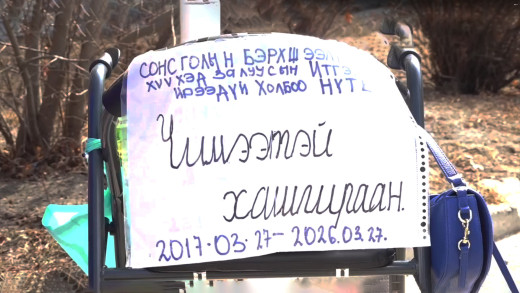 СОНСГОЛЫН БЭРХШЭЭЛ
ХҮҮХЭД ЗАЛУУСЫН ИТГЭ
ИРЭЭДҮЙ ХОЛБОО НҮТ
Чимээтэй
хашгираан.
2017.03.27- 2026.03.27.